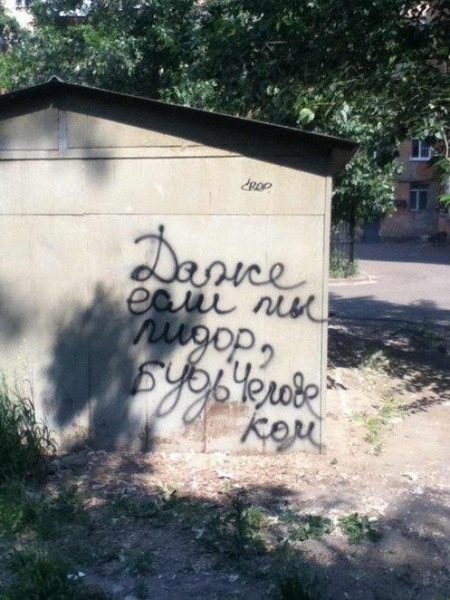 CROP
Даже
если ты
пидор,
Будь Челове
ком